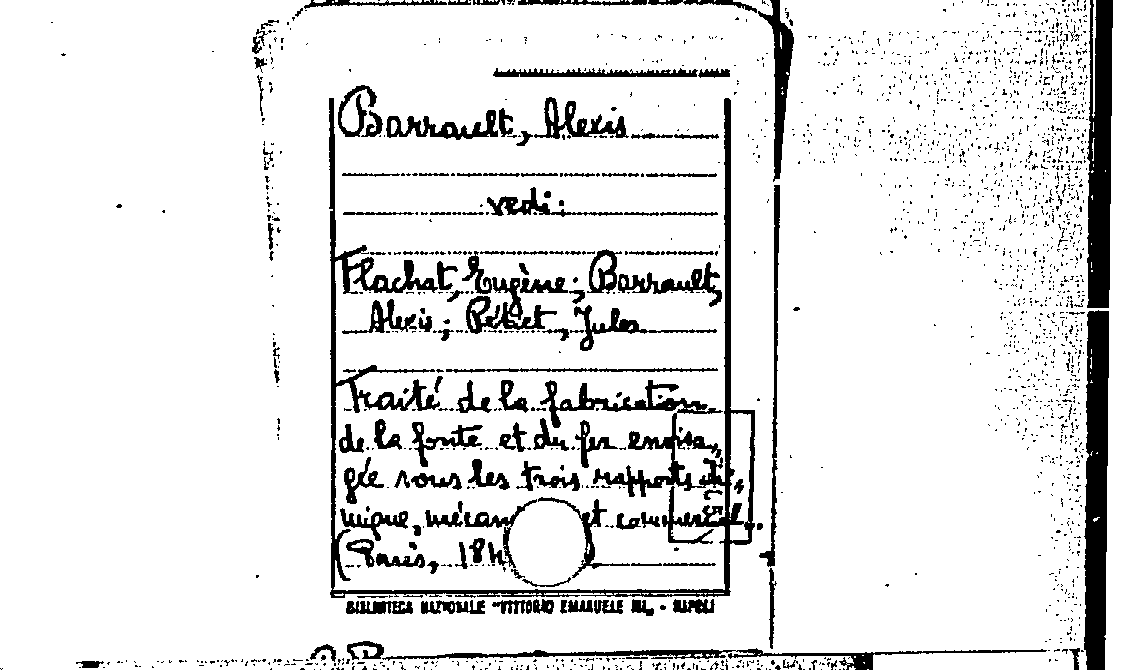 Barrault, Alexis
vedi:
Flachat, Eugène; Barrault,
Alexis; Pétiet, Jules
Traité de la fabrication
de la fonte et du fer envisa„
gée sous les trois rapports chi„
mique, mécan et commercial...
(Paris, 184
BIBLIOTECA NAZIONALE "VITTORIO EMANUELE III„ - NAPOLI